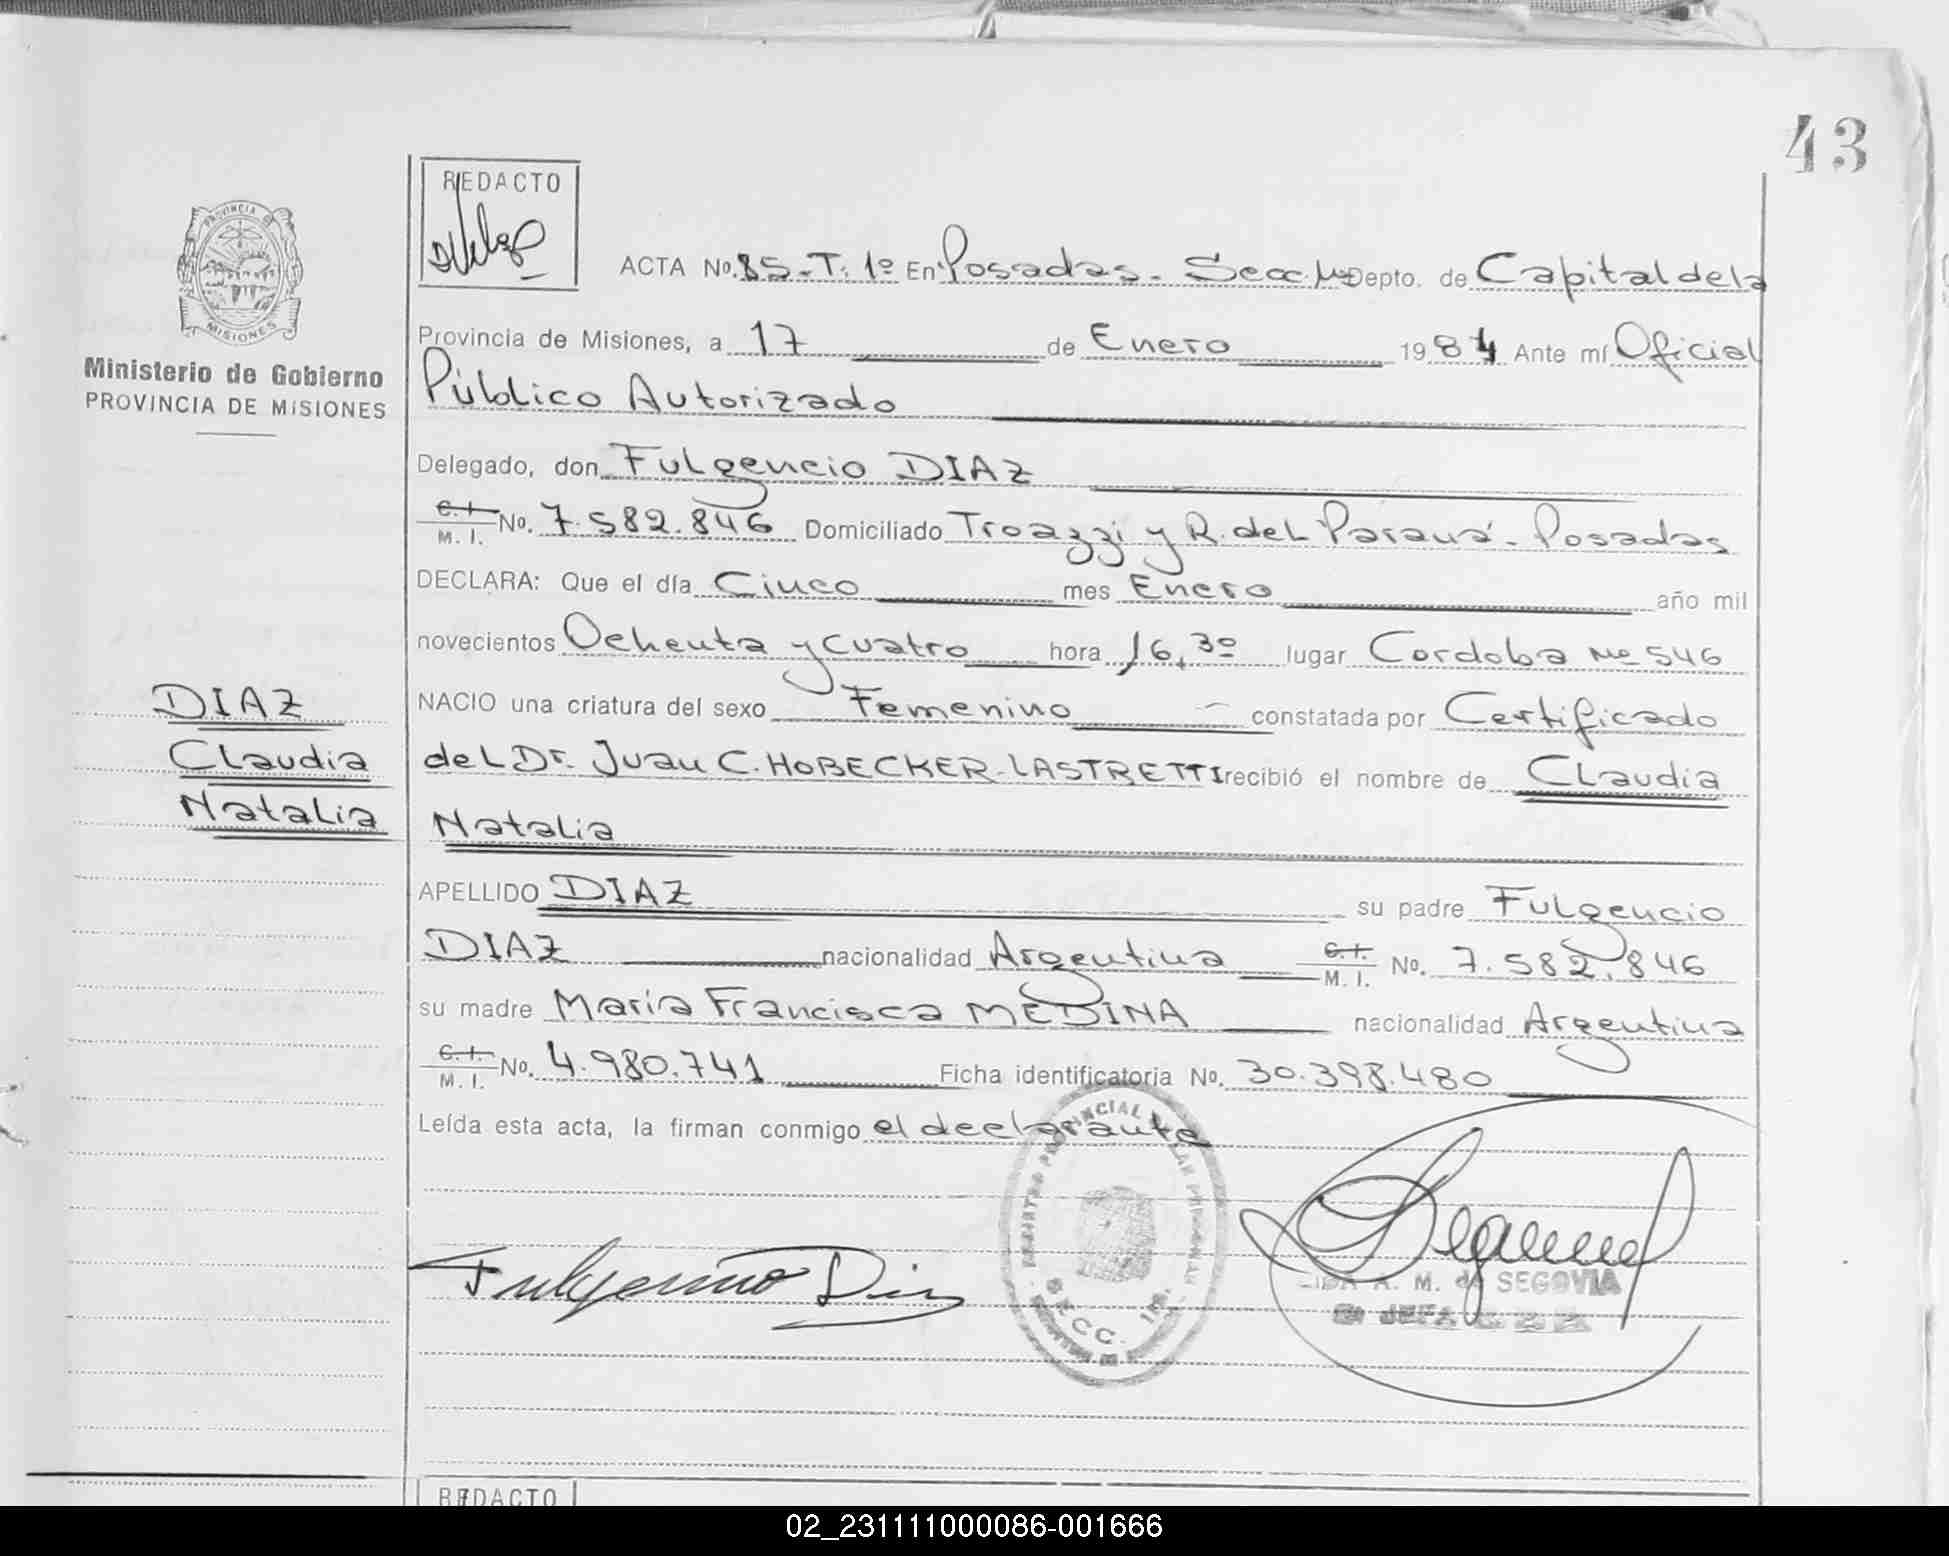 43
REDACTO
PROVINCIA DE
MISIONES
Ministerio de Gobierno
PROVINCIA DE MISIONES
ACTA No. 85-T. 1º En Posadas - Secc. Depto. de Capital de la
Provincia de Misiones, a 17 de Enero 1984 Ante mí Oficial
Público Autorizado
Delegado, don Fulgencio DIAZ
C. I. M. I. No. 7.582.846 Domiciliado Troazzi y R. del Paraná - Posadas
DECLARA: Que el día Cinco mes Enero año mil
novecientos Ochenta y cuatro hora 16,30 lugar Cordoba Nº 546
NACIO una criatura del sexo Femenino constatada por Certificado
del Dr. Juan C. HOBECKER - LASTRETTI recibió el nombre de Claudia
Natalia
DIAZ
Claudia
Natalia
APELLIDO DIAZ su padre Fulgencio
DIAZ nacionalidad Argentina C. I. M. I. No. 7.582.846
su madre María Francisca MEDINA nacionalidad Argentina
C. I. M. I. No. 4.980.741 Ficha identificatoria No. 30.398.480
Leída esta acta, la firman conmigo el declarante
Fulgencio Diaz
A. M. de SEGOVIA
JEFA
SECC. 1ra.
REDACTO
02_231111000086-001666